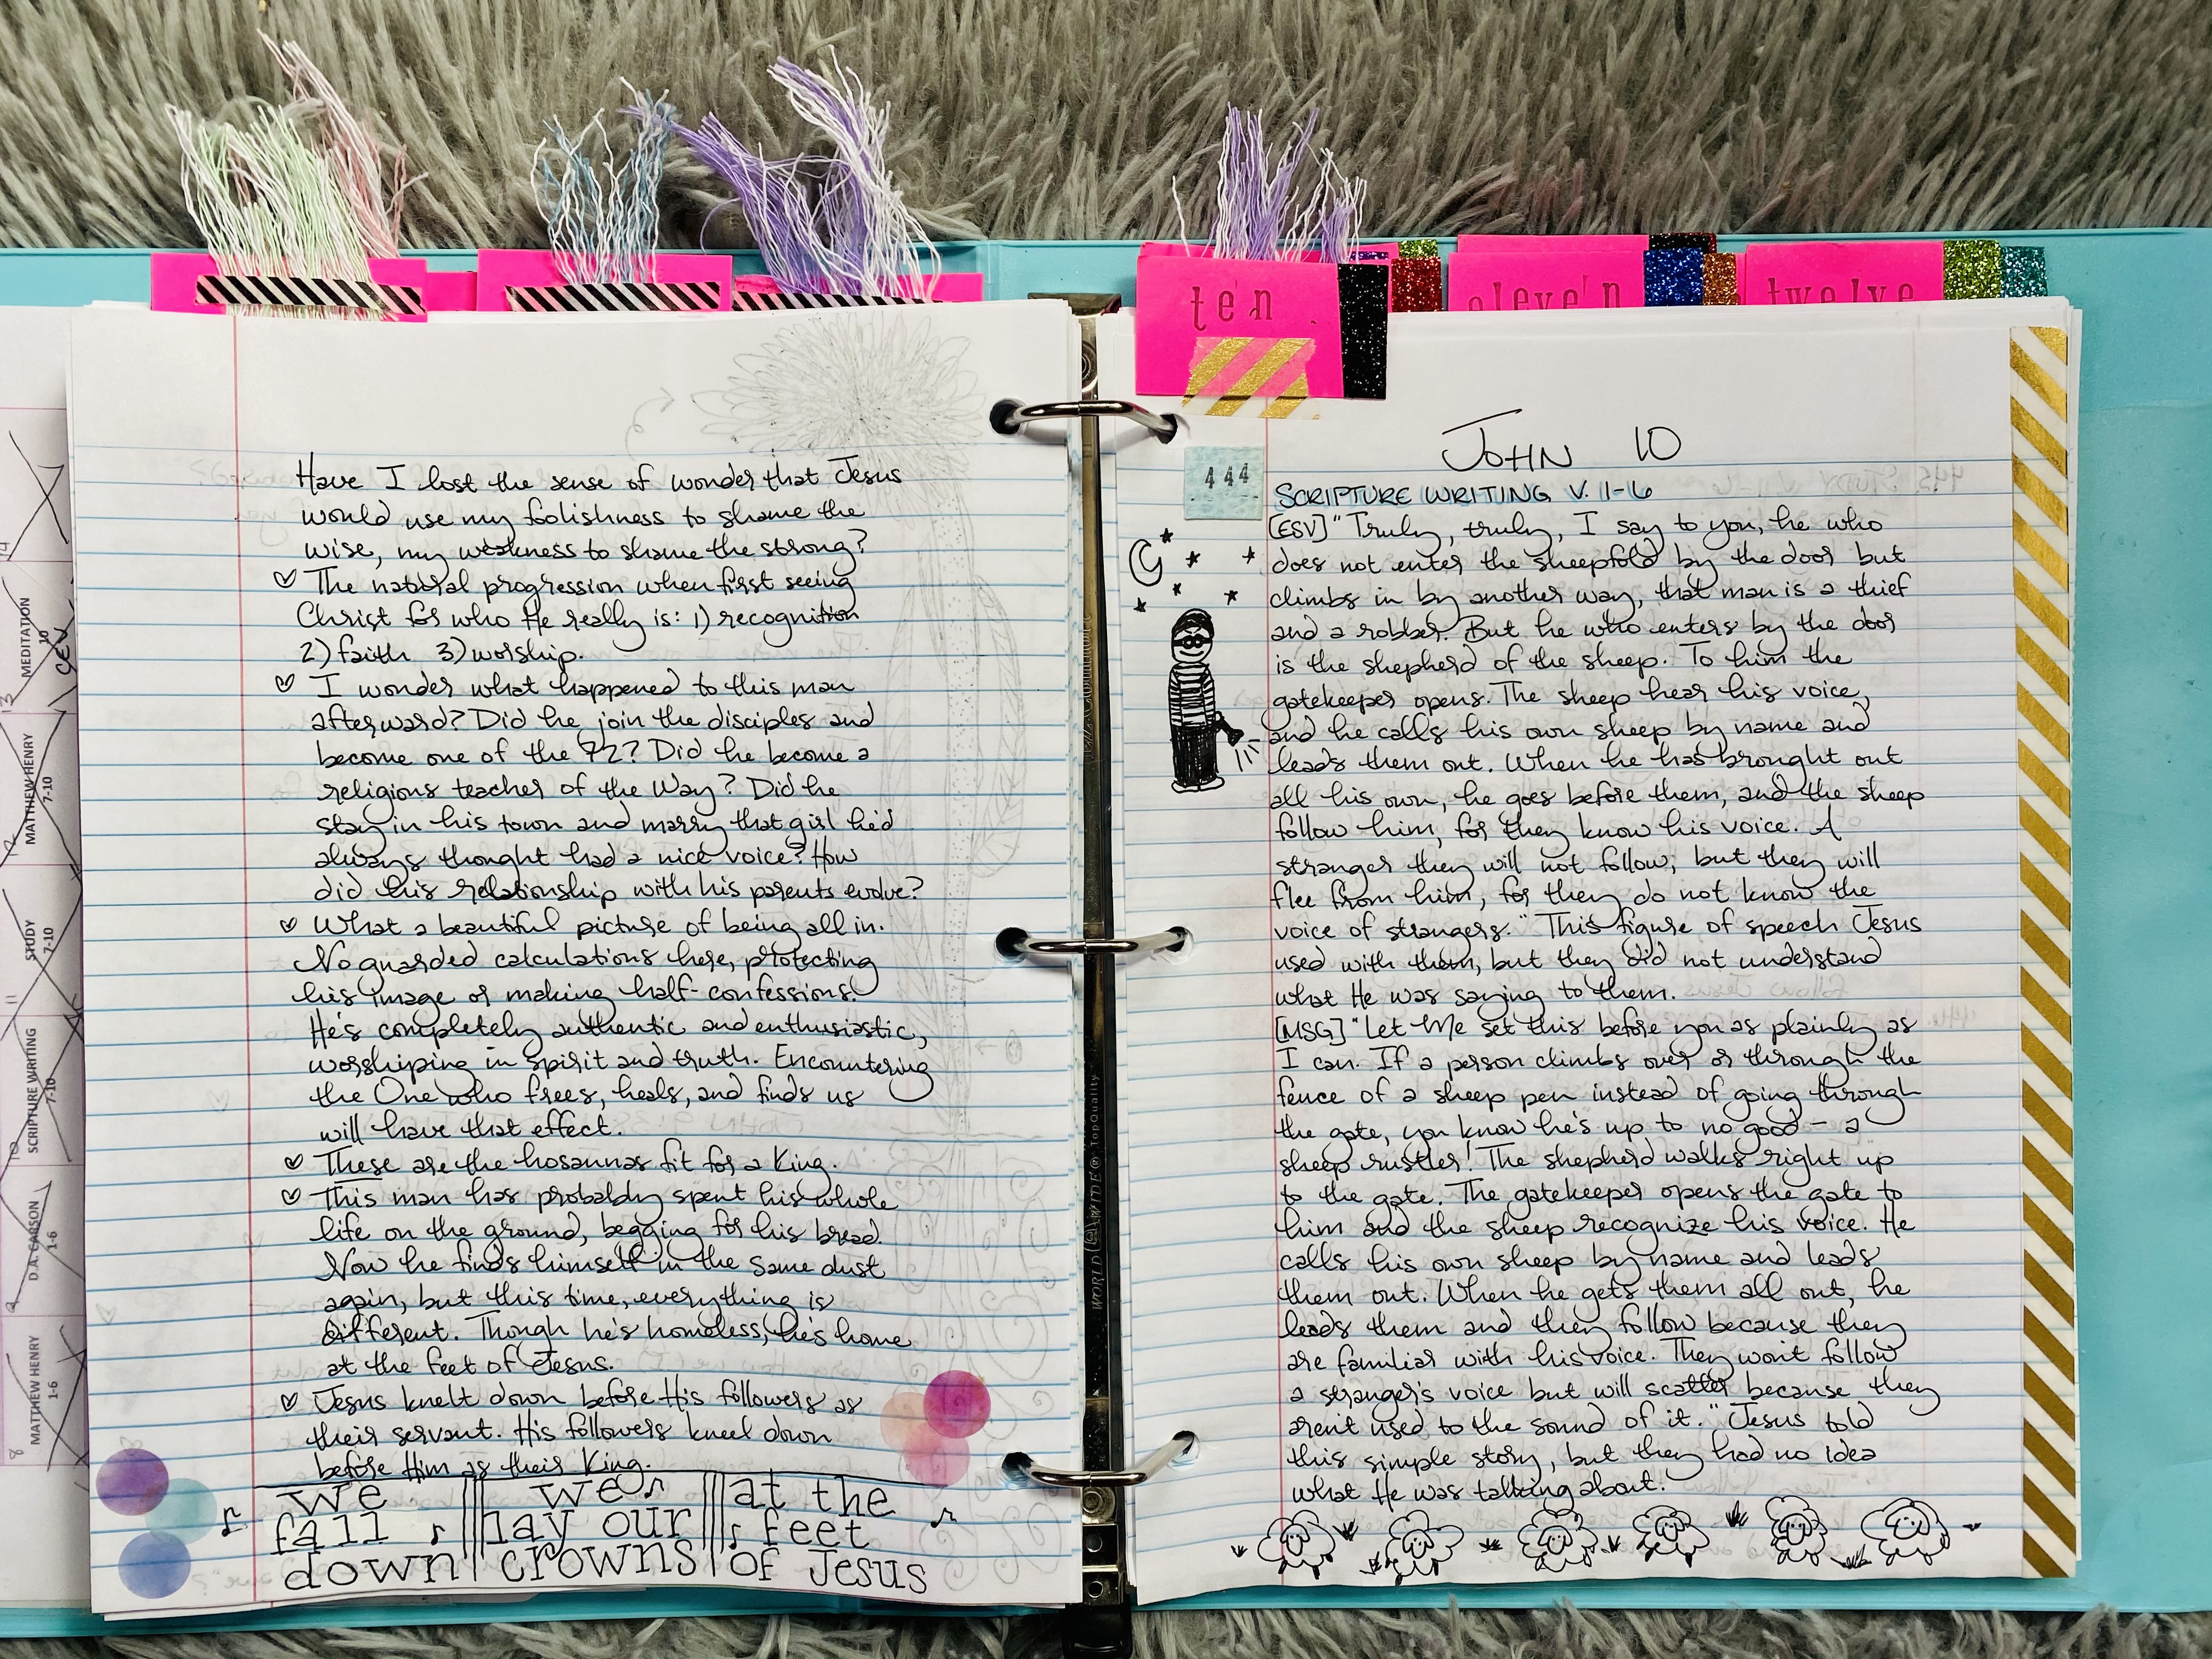 Have I lost the sense of wonder that Jesus
would use my foolishness to shame the
wise, my weakness to shame the strong?
♡ The natural progression when first seeing
Christ for who He really is: 1) recognition
2) faith 3) worship.
♡ I wonder what happened to this man
afterward? Did he join the disciples and
become one of the 72? Did he become a
religious teacher of the Way? Did he
stay in his town and marry that girl he'd
always thought had a nice voice? How
did his relationship with his parents evolve?
♡ What a beautiful picture of being all in.
No guarded calculations here, protecting
his image or making half-confessions.
He's completely authentic and enthusiastic,
worshiping in spirit and truth. Encountering
the One who frees, heals, and finds us
will have that effect.
♡ These are the hosannas fit for a King.
♡ This man has probably spent his whole
life on the ground, begging for his bread.
Now he finds himself in the same dust
again, but this time, everything is
different. Though he's homeless, he's home
at the feet of Jesus.
♡ Jesus knelt down before His followers as
their servant. His followers kneel down
before Him as their King.
we
fall
down
we
lay our
crowns
at the
feet
of Jesus
MEDITATION
7-10
CEV
MATTHEW HENRY
7-10
STUDY
7-10
SCRIPTURE WRITING
7-10
D.A. CARSON
1-6
MATTHEW HENRY
1-6
13
12
11
10
9
8
ten
eleven
twelve
JOHN 10
444
SCRIPTURE WRITING V. 1-6
[ESV] "Truly, truly, I say to you, he who
does not enter the sheepfold by the door but
climbs in by another way, that man is a thief
and a robber. But he who enters by the door
is the shepherd of the sheep. To him the
gatekeeper opens. The sheep hear his voice,
and he calls his own sheep by name and
leads them out. When he has brought out
all his own, he goes before them, and the sheep
follow him, for they know his voice. A
stranger they will not follow, but they will
flee from him, for they do not know the
voice of strangers." This figure of speech Jesus
used with them, but they did not understand
what He was saying to them.
[MSG] "Let Me set this before you as plainly as
I can. If a person climbs over or through the
fence of a sheep pen instead of going through
the gate, you know he's up to no good - a
sheep rustler! The shepherd walks right up
to the gate. The gatekeeper opens the gate to
him and the sheep recognize his voice. He
calls his own sheep by name and leads
them out. When he gets them all out, he
leads them and they follow because they
are familiar with his voice. They won't follow
a stranger's voice but will scatter because they
aren't used to the sound of it." Jesus told
this simple story, but they had no idea
what He was talking about.